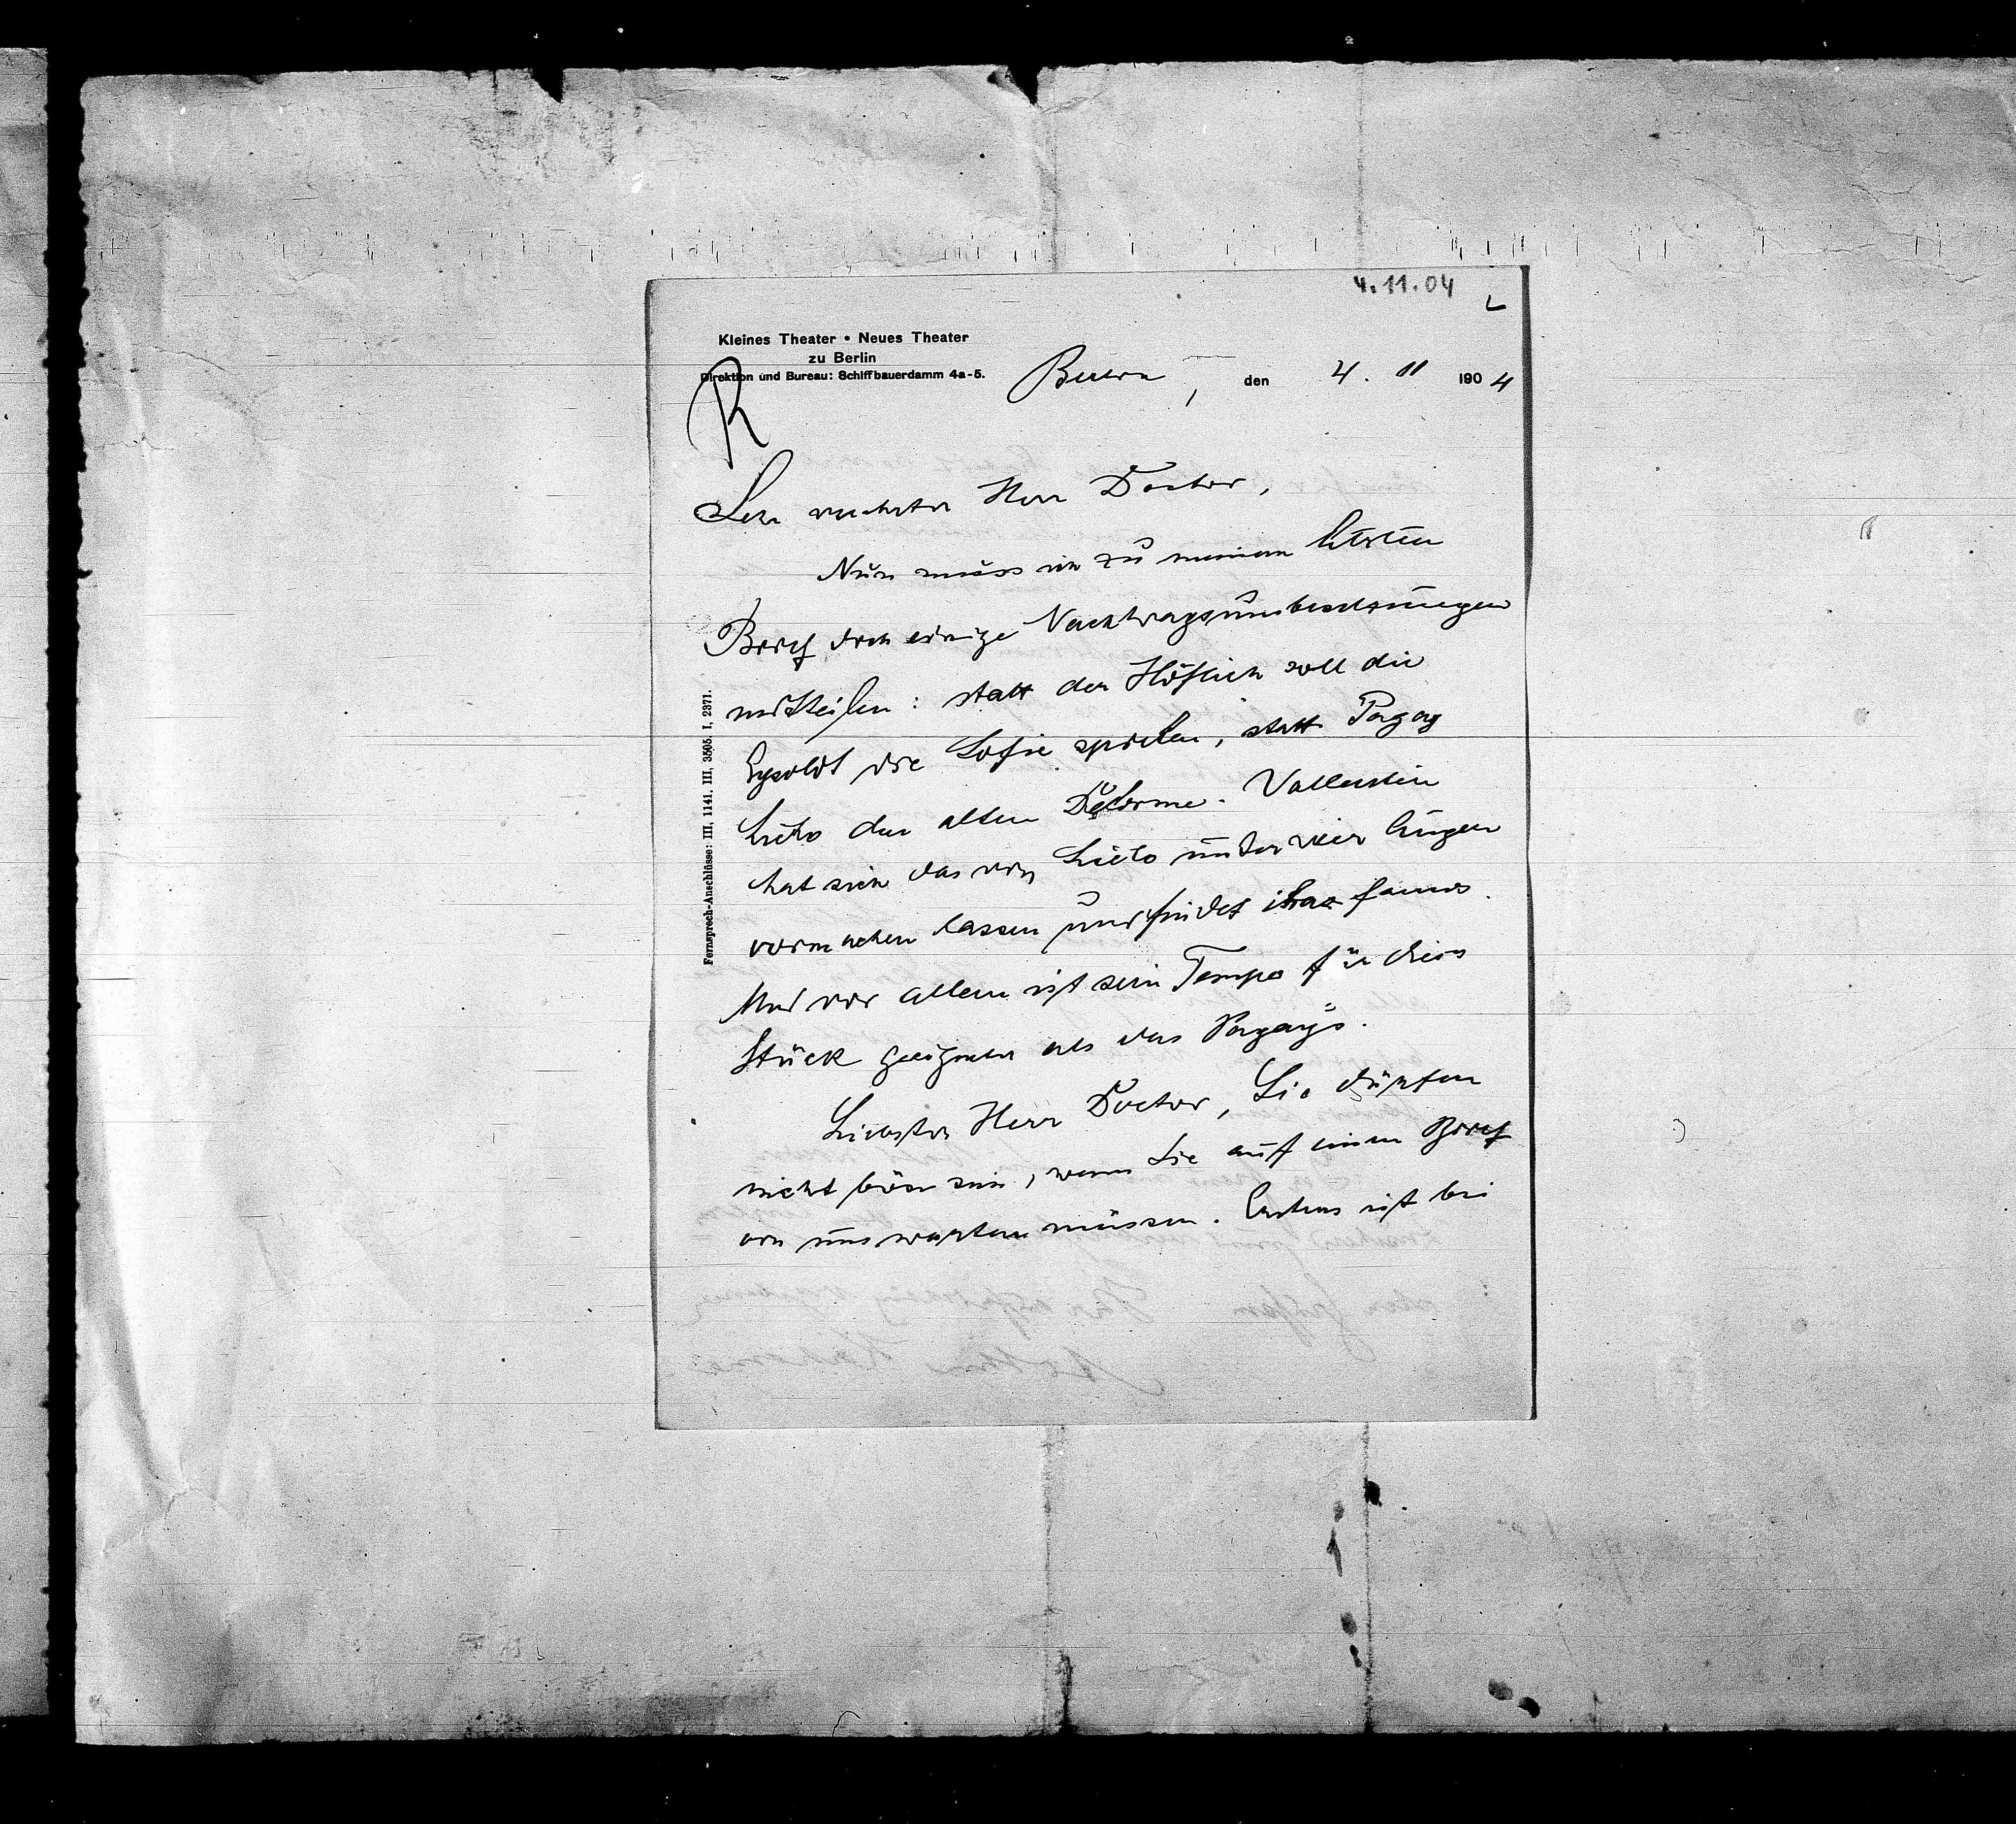 4.11.04
L
Kleines Theater • Neues Theater
zu Berlin
Direktion und Bureau: Schiffbauerdamm 4a-5.
Berlin, den 4. 11 1904
R
Sehr verehrter Herr Doctor,
Nun muss ich zu meinem letzten
Brief doch einige Nachtragsumbesetzungen
mittheilen: statt der Höflich soll die
Eysoldt die Sofie spielen, statt Pagay
Licho den alten Delorme. Vallentin
hat sich das von Licho unter vier Augen
vormachen lassen und findet ihn famos.
Und vor allem ist sein Tempo für dies
Stück geeigneter als das Pagay's.
Liebster Herr Doctor, Sie dürfen
nicht böse sein, wenn Sie auf einen Brief
von uns warten müssen. Erstens ist bei
Fernsprech-Anschlüsse: III, 1141. III, 3505. I, 2371.